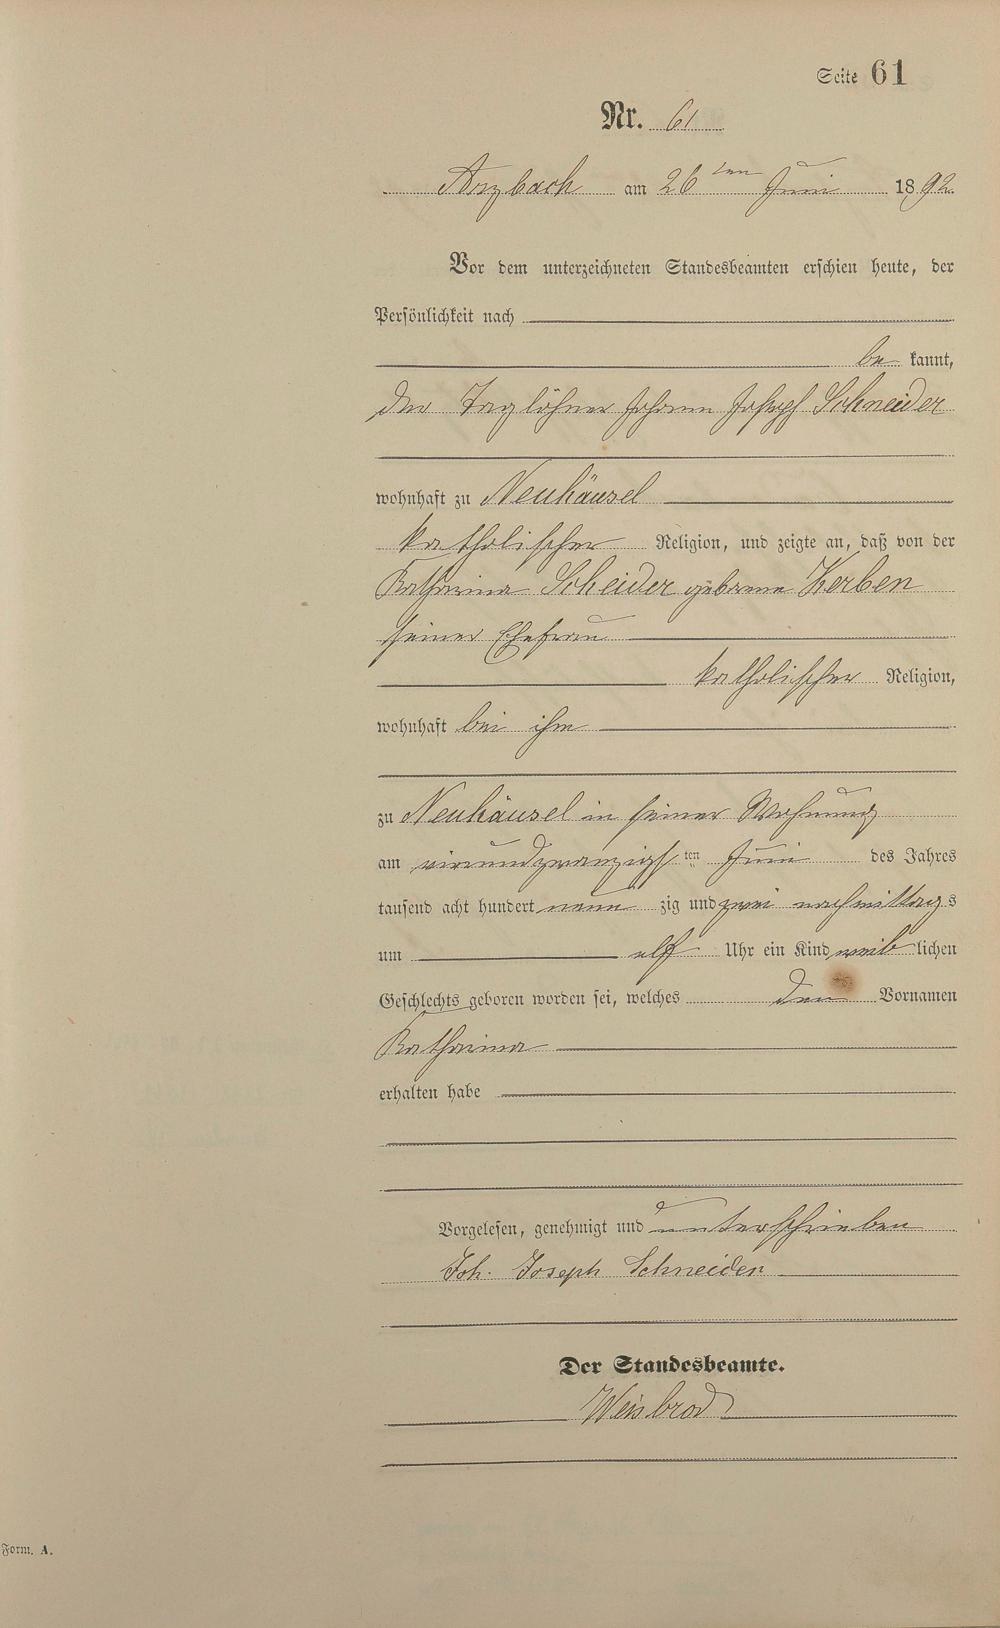 Seite 61
Nr. 61
Arzbach am 26ten Juni 1892
Vor dem unterzeichneten Standesbeamten erschien heute, der
Persönlichkeit nach
be kannt,
der Taglöhner Johann Joseph Schneider
wohnhaft zu Neuhäusel
katholischer Religion, und zeigte an, daß von der
Katharina Scheider geborene Kerben
seiner Ehefrau
katholischer Religion,
wohnhaft bei ihm
zu Neuhäusel in seiner Wohnung
am vierundzwanzigsten Juni des Jahres
tausend acht hundert neun zig und zwei nachmittags
um elf Uhr ein Kind weib lichen
Geschlechts geboren worden sei, welches den Vornamen
Katharina
erhalten habe
Vorgelesen, genehmigt und unterschrieben
Joh. Joseph Schneider
Der Standesbeamte.
Weisbrod
Form. A.